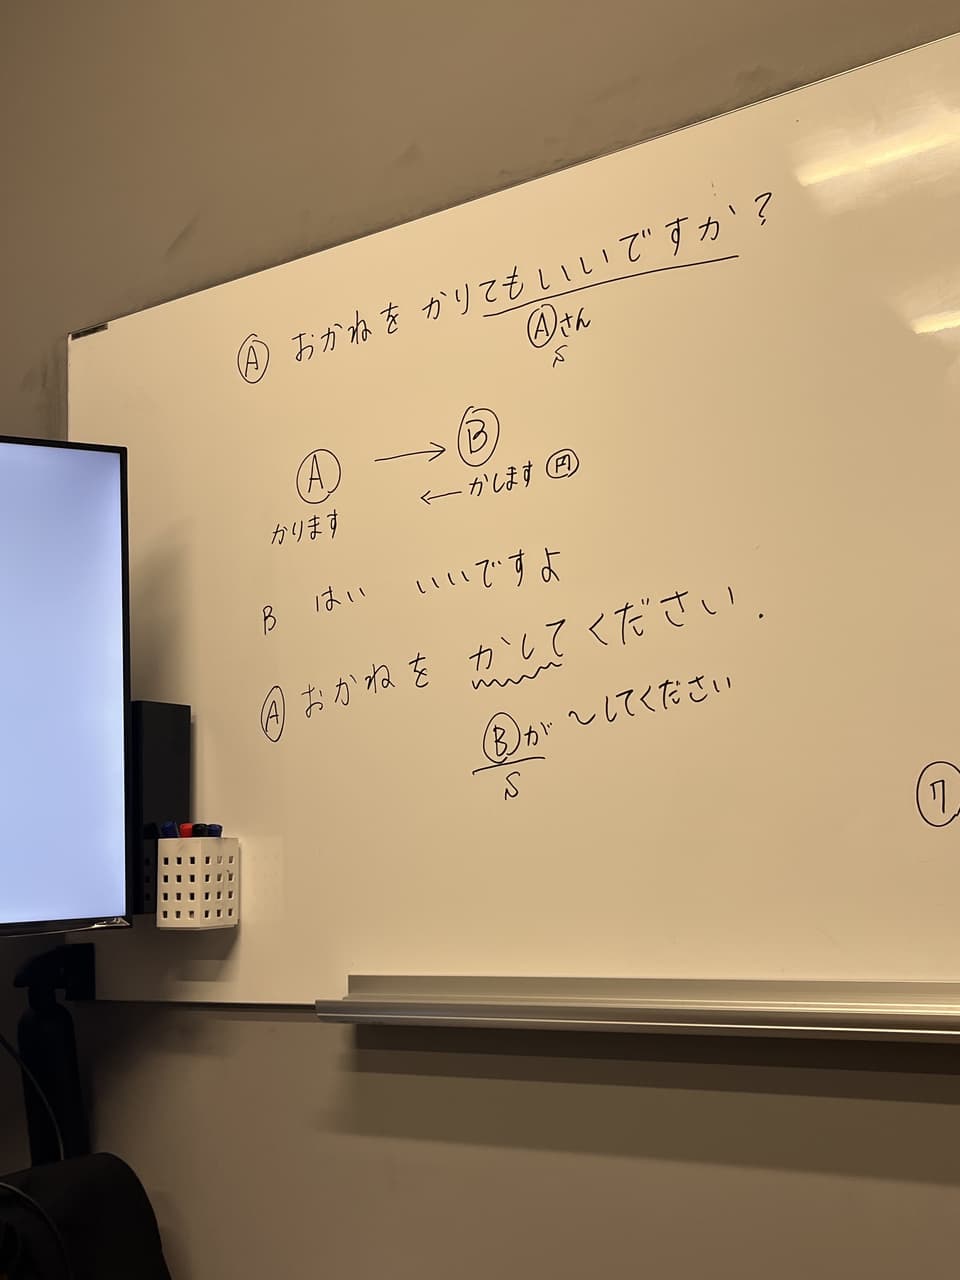 Ⓐ おかねを かりてもいいですか?
Ⓐさん
S
Ⓐ → Ⓑ
← かします ㊀円
かります
B はい いいですよ
Ⓐ おかねを かしてください.
Ⓑが 〜してください
S
ワ